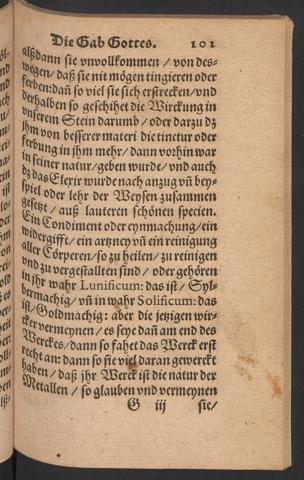 Die Gab Gottes. 101
alßdann sie vnvollkommen / von des-
wegen / daß sie nit mögen tingieren oder
ferben: dañ so viel sie sich erstrecken / vnd
derhalben so geschihet die Wirckung in
vnserem Stein darumb / oder darzu dz
jhm von besserer materi die tinctur oder
ferbung in jhm mehr / dann vorhin war
in seiner natur / geben wurde / vnd auch
dz das Elexir wurde nach anzug vñ bey-
spiel oder lehr der Weysen zusammen
gesetzt / auß lauteren schönen specien.
Ein Condiment oder eynmachung / ein
widergifft / ein artzney vñ ein reinigung
aller Cörperen / so zu heilen / zu reinigen
vnd zu vergestallten sind / oder gehören
in jhr wahr Lunificum: das ist / Syl-
bermachig / vñ in wahr Solificum: das
ist / Goldmachig: aber die jetzigen wir-
cker vermeynen / es seye dañ am end des
Werckes / dann so fahet das Werck erst
recht an: dann so sie viel daran gewerckt
haben / daß jhr Werck ist die natur der
Metallen / so glauben vnd vermeynen
G iij sie /